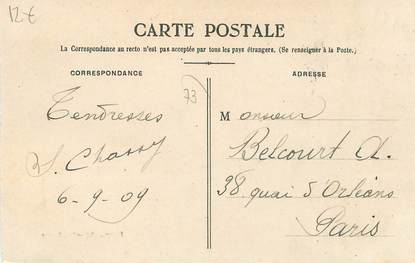 12€
CARTE POSTALE
La Correspondance au recto n'est pas acceptée par tous les pays étrangers. (Se renseigner à la Poste.)
CORRESPONDANCE
ADRESSE
73
Tendresses
Chassy
6-9-09
Monsieur
Belcourt A.
38 quai d'Orléans
Paris